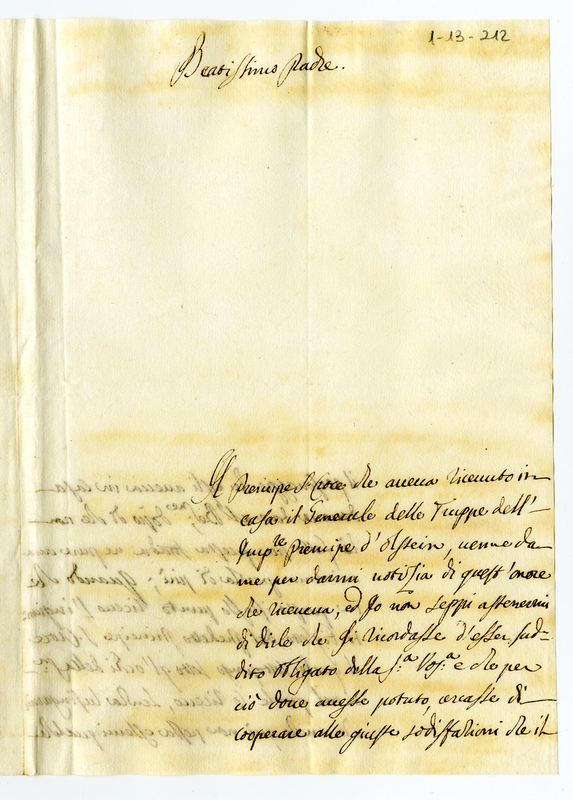 1-13-212
Beatissimo Padre.
Il Prencipe S. Croce che aueua riceuuto in
casa il Generale delle Truppe dell'
Imp.re Prencipe d'Olstein, uenne da
me per darmi notitia di quest'onore
che riceueua, ed Io non seppi astenermi
di dirle che si ricordasse d'esser sud-
dito obligato della S.a Vos.a e che per
ciò doue auesse potuto, cercasse di
cooperare alle giuste sodisfazioni che il